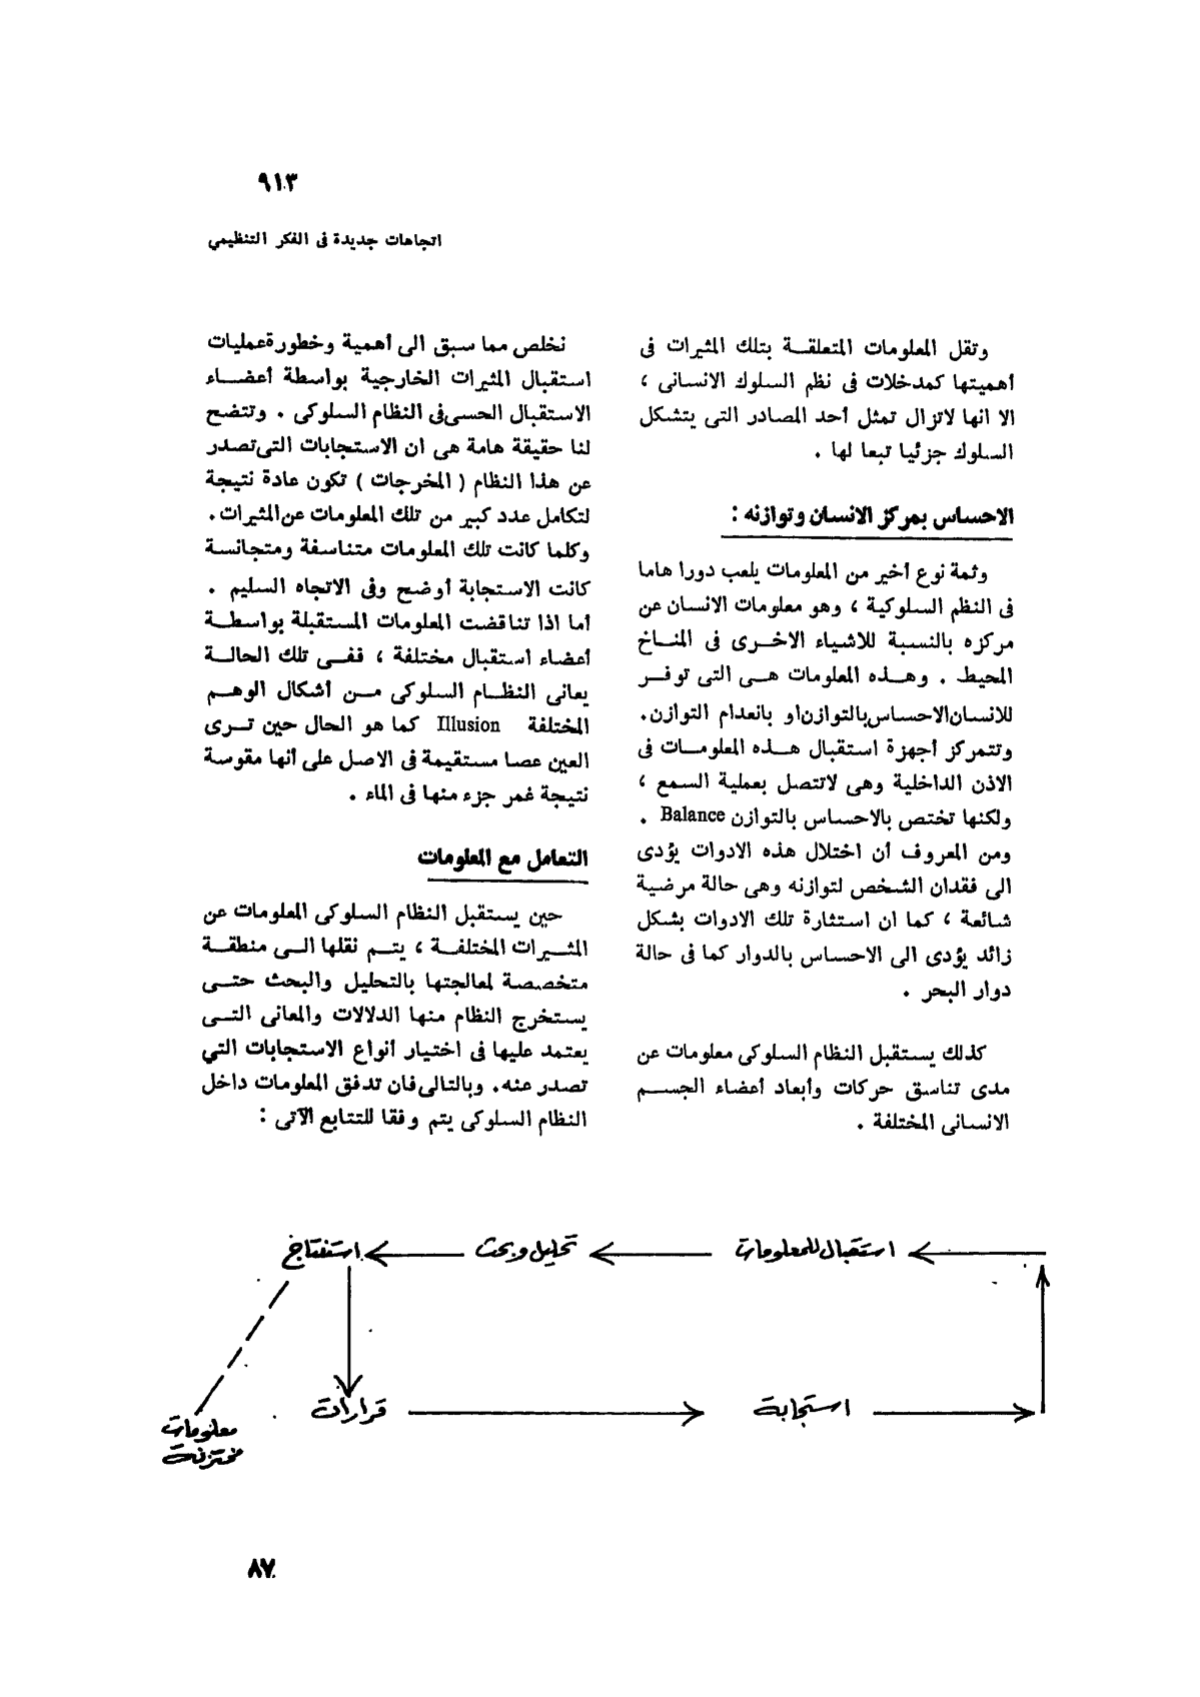 ٩١٣
اتجاهات جديدة فى الفكر التنظيمي
وتقل المعلومات المتعلقة بتلك المثيرات فى
أهميتها كمدخلات فى نظم السلوك الانسانى ،
الا انها لاتزال تمثل أحد المصادر التى يتشكل
السلوك جزئيا تبعا لها .
الاحساس بمركز الانسان وتوازنه :
وثمة نوع أخير من المعلومات يلعب دورا هاما
فى النظم السلوكية ، وهو معلومات الانسان عن
مركزه بالنسبة للاشياء الاخرى فى المناخ
المحيط . وهذه المعلومات هى التى توفر
للانسان الاحساس بالتوازن او بانعدام التوازن.
وتتمركز أجهزة استقبال هذه المعلومات فى
الاذن الداخلية وهى لاتتصل بعملية السمع ،
ولكنها تختص بالاحساس بالتوازن Balance .
ومن المعروف أن اختلال هذه الادوات يؤدى
الى فقدان الشخص لتوازنه وهى حالة مرضية
شائعة ، كما ان استثارة تلك الادوات بشكل
زائد يؤدى الى الاحساس بالدوار كما فى حالة
دوار البحر .
كذلك يستقبل النظام السلوكى معلومات عن
مدى تناسق حركات وأبعاد أعضاء الجسم
الانسانى المختلفة .
نخلص مما سبق الى أهمية وخطورة عمليات
استقبال المثيرات الخارجية بواسطة أعضاء
الاستقبال الحسى فى النظام السلوكى . وتتضح
لنا حقيقة هامة هى ان الاستجابات التى تصدر
عن هذا النظام ( المخرجات ) تكون عادة نتيجة
لتكامل عدد كبير من تلك المعلومات عن المثيرات .
وكلما كانت تلك المعلومات متناسفة ومتجانسة
كانت الاستجابة أوضح وفى الاتجاه السليم .
أما اذا تناقضت المعلومات المستقبلة بواسطة
أعضاء استقبال مختلفة ، ففى تلك الحالة
يعانى النظام السلوكى من أشكال الوهم
المختلفة Illusion كما هو الحال حين ترى
العين عصا مستقيمة فى الاصل على أنها مقوسة
نتيجة غمر جزء منها فى الماء .
التعامل مع المعلومات
حين يستقبل النظام السلوكى المعلومات عن
المثيرات المختلفة ، يتم نقلها الى منطقة
متخصصة لمعالجتها بالتحليل والبحث حتى
يستخرج النظام منها الدلالات والمعانى التى
يعتمد عليها فى اختيار أنواع الاستجابات التي
تصدر عنه. وبالتالى فان تدفق المعلومات داخل
النظام السلوكى يتم وفقا للتتابع الآتى :
استقبال للمعلومات
تحليل وبحث
استنتاج
قرارات
استجابة
معلومات
مختزنة
٨٧